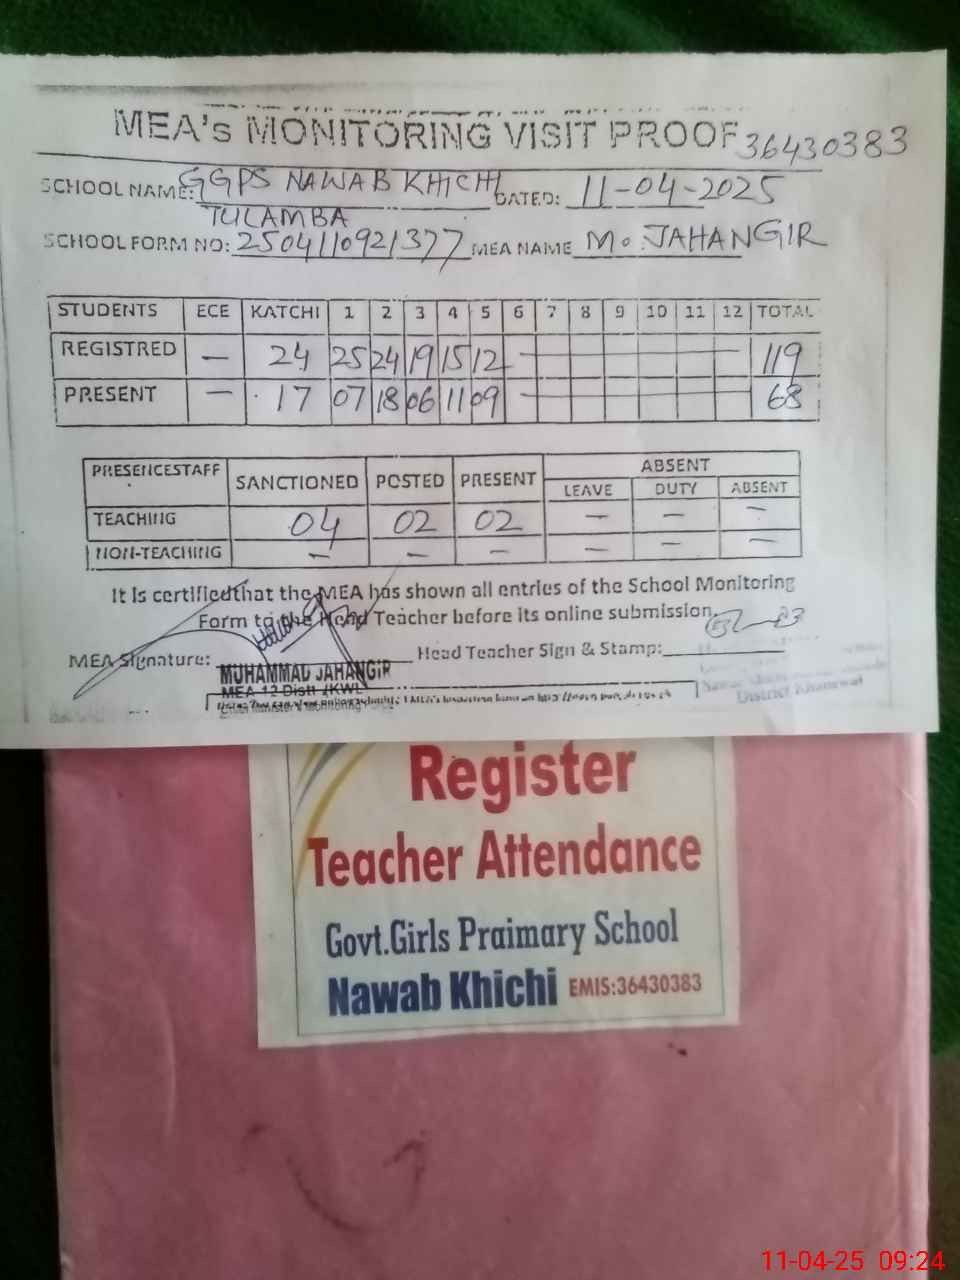 MEA's MONITORING VISIT PROOF 36430383
SCHOOL NAME: GGPS NAWAB KHICHI DATED: 11-04-2025
TULAMBA
SCHOOL FORM NO: 2504110921377 MEA NAME M. JAHANGIR
STUDENTS ECE KATCHI 1 2 3 4 5 6 7 8 9 10 11 12 TOTAL
REGISTRED — 24 25 24 19 15 12 — 119
PRESENT — 17 07 18 06 11 09 — 68
PRESENCESTAFF SANCTIONED POSTED PRESENT ABSENT
LEAVE DUTY ABSENT
TEACHING 04 02 02 — — —
NON-TEACHING — — — — — —
It is certifiedthat the MEA has shown all entries of the School Monitoring
Form to the Head Teacher before its online submission.
MEA Signature: Head Teacher Sign & Stamp:
MUHAMMAD JAHANGIR
MEA 12 Distt (KWL)
District Khanewal
Register
Teacher Attendance
Govt.Girls Praimary School
Nawab Khichi EMIS:36430383
11-04-25 09:24